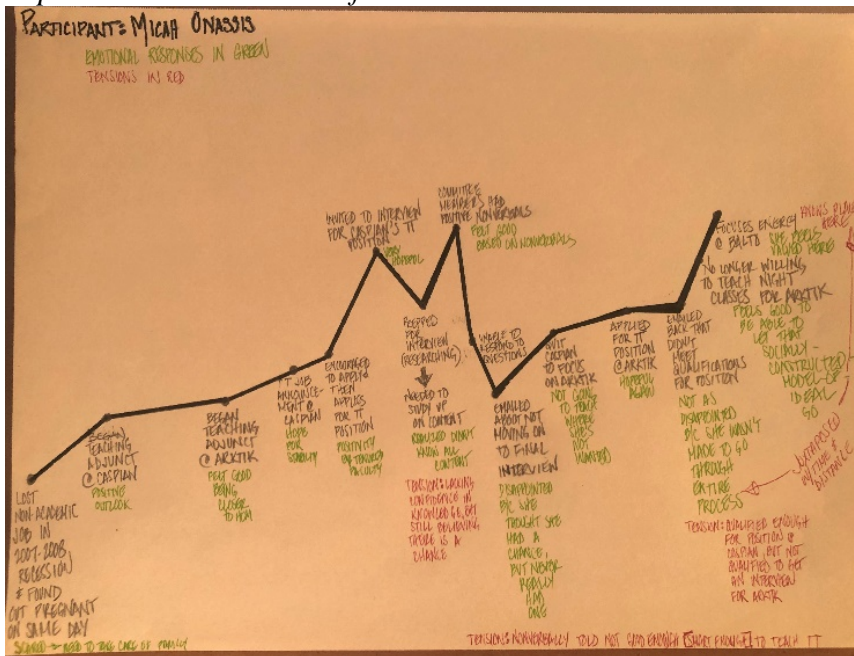 PARTICIPANT: MICAH ONASSIS
EMOTIONAL RESPONSES IN GREEN
TENSIONS IN RED
LOST
NON-ACADEMIC
JOB IN
2007-2008
RECESSION
& FOUND
OUT PREGNANT
ON SAME DAY
SCARED → NEED TO TAKE CARE OF FAMILY
BEGAN
TEACHING
ADJUNCT
@ CASPIAN
POSITIVE
OUTLOOK
BEGAN
TEACHING
ADJUNCT
@ ARKTIK
FELT GOOD
BEING
CLOSER
TO MOM
TT JOB
ANNOUNCE-
MENT @
CASPIAN
HOPE
FOR
STABILITY
ENCOURAGED
TO APPLY &
THEN
APPLIES
FOR TT
POSITION
POSITIVITY
BY TENURED
FACULTY
INVITED TO INTERVIEW
FOR CASPIAN'S TT
POSITION
VERY
HOPEFUL
PREPPED
FOR
INTERVIEW
(RESEARCHING)
NEEDED TO
STUDY UP
ON CONTENT
REALIZED DIDN'T
KNOW ALL
CONTENT
TENSION: LACKING
CONFIDENCE IN
KNOWLEDGE, BUT
STILL BELIEVING
THERE IS A
CHANCE
COMMITTEE
MEMBERS HAD
POSITIVE NONVERBALS
FELT GOOD
BASED ON NONVERBALS
UNABLE TO
RESPOND TO
QUESTIONS
EMAILED
ABOUT NOT
MOVING ON
TO FINAL
INTERVIEW
DISAPPOINTED
B/C SHE
THOUGHT SHE
HAD A
CHANCE,
BUT NEVER
REALLY
HAD
ONE
QUIT
CASPIAN
TO FOCUS
ON ARKTIK
NOT GOING
TO TEACH
WHERE
SHE'S
NOT
WANTED
APPLIED
FOR TT
POSITION
@ ARKTIK
HOPEFUL
AGAIN
EMAILED
BACK THAT
DIDN'T
MEET
QUALIFICATIONS
FOR POSITION
NOT AS
DISAPPOINTED
B/C SHE WASN'T
MADE TO GO
THROUGH
ENTIRE
PROCESS
TENSION: QUALIFIED ENOUGH
FOR POSITION @
CASPIAN, BUT NOT
QUALIFIED TO GET
AN INTERVIEW
FOR ARKTIK
FOCUSES ENERGY
@ BALTO SHE FEELS
VALUED HERE
NO LONGER WILLING
TO TEACH NIGHT
CLASSES FOR ARKTIK
FEELS GOOD TO
BE ABLE TO
LET THAT
SOCIALLY-
CONSTRUCTED
MODEL-OF
IDEAL
GO
KNOWS PLACE
HERE
JUXTAPOSED
W/ TIME &
DISTANCE
TENSION: NONVERBALLY TOLD NOT GOOD ENOUGH [SMART ENOUGH] TO TEACH TT